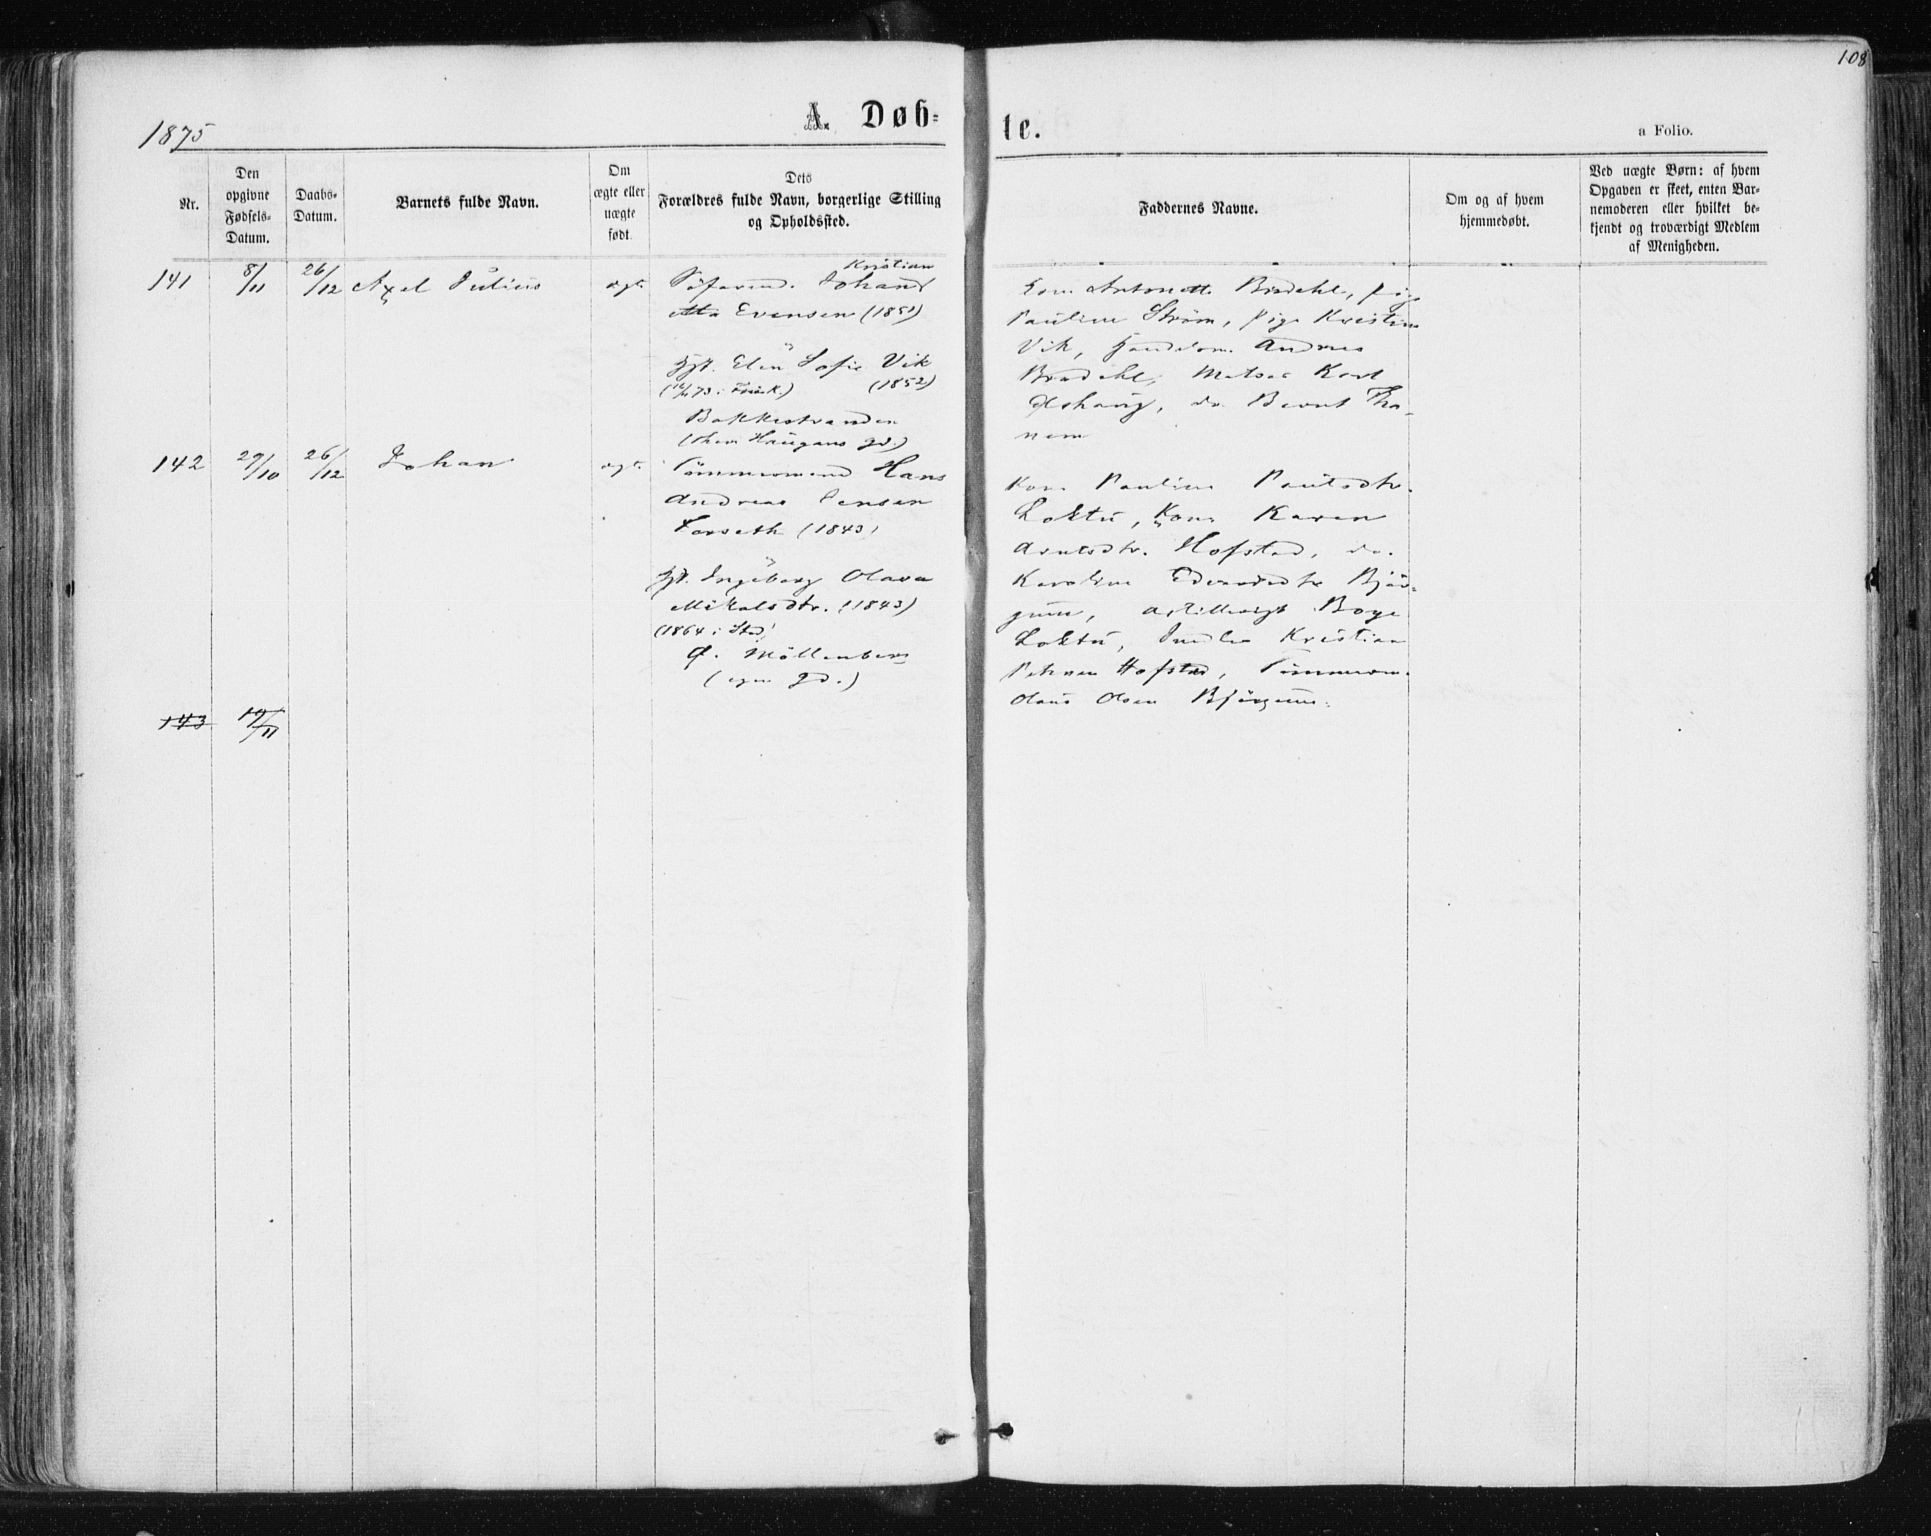 108
1875
A. Døb-
te.
a Folio.
Nr.
Den
opgivne
Fødsels-
Datum.
Daabs-
Datum.
Barnets fulde Navn.
Om
ægte eller
uægte
født.
Dets
Forældres fulde Navn, borgerlige Stilling
og Opholdssted.
Faddernes Navne.
Om og af hvem
hjemmedøbt.
Ved uægte Børn: af hvem
Opgaven er skeet, enten Bar-
nemoderen eller hvilket be-
kjendt og troværdigt Medlem
af Menigheden.
141
8/11
26/12
Axel Julius
ægt.
Kristian
Johan
Evensen (1851)
Elen Sofie Vik
(1852)
Bakkestranden
Antonette Brodahl,
Pauline Strøm, pige Kristine
Vik, Andreas
Brodahl, Matros Karl
do. Bernt Tha-
nem
142
29/10
26/12
Johan
ægt.
Tømmermand Hans
Andreas Jensen
Forseth (1843)
Ingeborg Olava
Mikalsdtr. (1843)
(1864 i Std)
Ø. Möllenberg
(egen gd.)
Kone Pauline Paulsdtr.
Loktu, Kone Karen
Arntsdtr. Hofstad, do.
Karoline Edvardsdtr Bjør-
gum, Boye
Loktu, Kristian
Petersen Hofstad, Tømmerm.
Olaus Olsen Bjørgum.
143
19/11